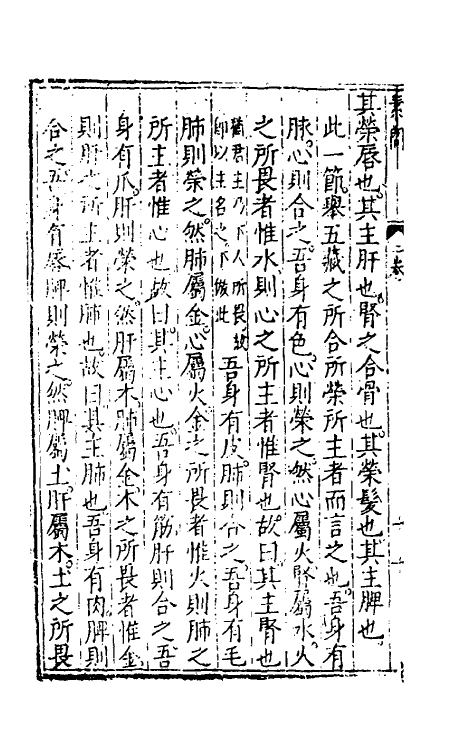 素問
二卷
其榮唇也。其主肝也。腎之合骨也。其榮髮也。其主脾也。
此一節舉五藏之所合所榮所主者而言之也。吾身有
脉。心則合之。吾身有色。心則榮之。然心屬火。腎屬水。火
之所畏者惟水。則心之所主者惟腎也。故曰其主腎也
猶君主乃下人所畏。故
即以主名之。下倣此
吾身有皮。肺則合之。吾身有毛
肺則榮之。然肺屬金。心屬火。金之所畏者惟火。則肺之
所主者惟心也。故曰其主心也。吾身有筋。肝則合之。吾
身有爪。肝則榮之。然肝屬木。肺屬金。木之所畏者惟金。
則肝之所主者惟肺也。故曰其主肺也。吾身有肉。脾則
合之。吾身有唇。脾則榮之。然脾屬土。肝屬木。土之所畏